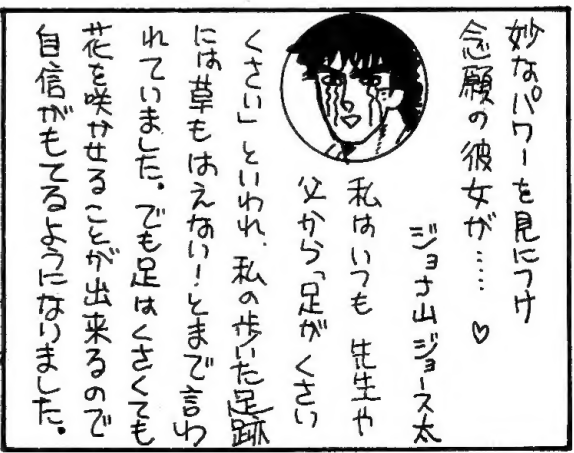 妙なパワーを見につけ
念願の彼女が……♡
ジョナ山ジョース太
私はいつも先生や
父から「足がくさい
くさい」といわれ、私の歩いた足跡
には草もはえない!とまで言わ
れていました。でも足はくさくても
花を咲かせることが出来るので
自信がもてるようになりました。